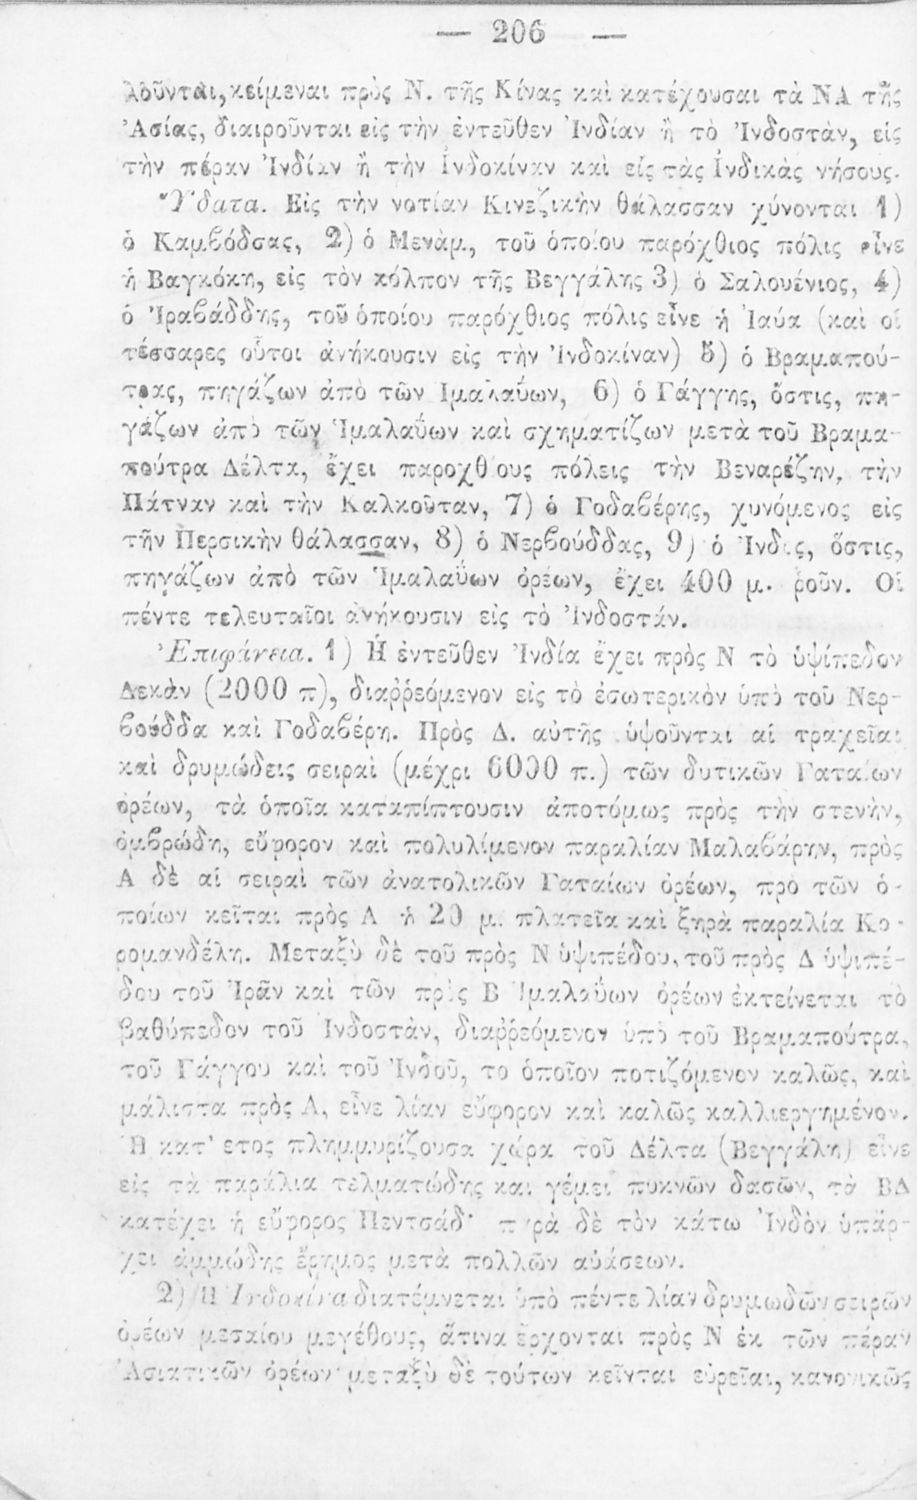 — 206 —
λοῦνται, κείμεναι πρὸς Ν. τῆς Κίνας καὶ κατέχουσαι τὰ ΝΑ τῆς
Ἀσίας, διαιροῦνται εἰς τὴν ἐντεῦθεν Ἰνδίαν ἢ τὸ Ἰνδοστὰν, εἰς
τὴν πέραν Ἰνδίαν ἢ τὴν Ἰνδοκίναν καὶ εἰς τὰς Ἰνδικὰς νήσους.
Ὕδατα. Εἰς τὴν νοτίαν Κινεζικὴν θάλασσαν χύνονται 1)
ὁ Καμβόδσας, 2) ὁ Μενὰμ, τοῦ ὁποίου παρόχθιος πόλις εἶνε
ἡ Βαγκόκη, εἰς τὸν κόλπον τῆς Βεγγάλης 3) ὁ Σαλουένιος, 4)
ὁ Ἰραβάδδης, τοῦ ὁποίου παρόχθιος πόλις εἶνε ἡ Ἰαύα (καὶ οἱ
τέσσαρες οὗτοι ἀνήκουσιν εἰς τὴν Ἰνδοκίναν) 5) ὁ Βραμαπού-
τρας, πηγάζων ἀπὸ τῶν Ἱμαλαΰων, 6) ὁ Γάγγης, ὅστις, πη-
γάζων ἀπὸ τῶν Ἱμαλαΰων καὶ σχηματίζων μετὰ τοῦ Βραμα-
πούτρα Δέλτα, ἔχει παροχθίους πόλεις τὴν Βεναρέζην, τὴν
Πάτναν καὶ τὴν Καλκοῦταν, 7) ὁ Γοδαβέρης, χυνόμενος εἰς
τῆν Περσικὴν θάλασσαν, 8) ὁ Νερβούδδας, 9) ὁ Ἰνδὸς, ὅστις,
πηγάζων ἀπὸ τῶν Ἱμαλαΰων ὀρέων, ἔχει 400 μ. ῥοῦν. Οἱ
πέντε τελευταῖοι ἀνήκουσιν εἰς τὸ Ἰνδοστάν.
Ἐπιφάνεια. 1) Ἡ ἐντεῦθεν Ἰνδία ἔχει πρὸς Ν τὸ ὑψίπεδον
Δεκὰν (2000 π), διαῤῥεόμενον εἰς τὸ ἐσωτερικὸν ὑπὸ τοῦ Νερ-
βούδδα καὶ Γοδαβέρη. Πρὸς Δ. αὐτῆς ὑψοῦνται αἱ τραχεῖαι
καὶ δρυμώδεις σειραὶ (μέχρι 6000 π.) τῶν δυτικῶν Γαταίων
ὀρέων, τὰ ὁποῖα καταπίπτουσιν ἀποτόμως πρὸς τὴν στενὴν,
ὀμβρώδη, εὔφορον καὶ πολυλίμενον παραλίαν Μαλαβάρην, πρὸς
Α δὲ αἱ σειραὶ τῶν ἀνατολικῶν Γαταίων ὀρέων, πρὸ τῶν ὁ-
ποίων κεῖται πρὸς Α ἡ 20 μ. πλατεῖα καὶ ξηρὰ παραλία Κο-
ρομανδέλη. Μεταξὺ δὲ τοῦ πρὸς Ν ὑψιπέδου, τοῦ πρὸς Δ ὑψιπέ-
δου τοῦ Ἰρᾶν καὶ τῶν πρὸς Β Ἱμαλαΰων ὀρέων ἐκτείνεται τὸ
βαθύπεδον τοῦ Ἰνδοστὰν, διαῤῥεόμενον ὑπὸ τοῦ Βραμαπούτρα,
τοῦ Γάγγου καὶ τοῦ Ἰνδοῦ, το ὁποῖον ποτιζόμενον καλῶς, καὶ
μάλιστα πρὸς Α, εἶνε λίαν εὔφορον καὶ καλῶς καλλιεργημένον.
Ἡ κατ' ετος πλημμυρίζουσα χώρα τοῦ Δέλτα (Βεγγάλη) εἶνε
εἰς τὰ παράλια τελματώδης και γέμει πυκνῶν δασῶν, τὸ ΒΔ
κατέχει ἡ εὔφορος Πεντσάβ· παρὰ δὲ τὸν κάτω Ἰνδὸν ὑπάρ-
χει ἀμμώδης ἔρημος μετὰ πολλῶν αὐάσεων.
2) Ἡ Ἰνδοκίνα διατέμνεται ὑπὸ πέντε λίαν δρυμωδῶν σειρῶν
ὀρέων μεσαίου μεγέθους, ἅτινα ἔρχονται πρὸς Ν ἐκ τῶν πέραν
Ἀσιατικῶν ὀρέων· μεταξὺ δὲ τούτων κεῖνται εὐρεῖαι, κανονικῶς